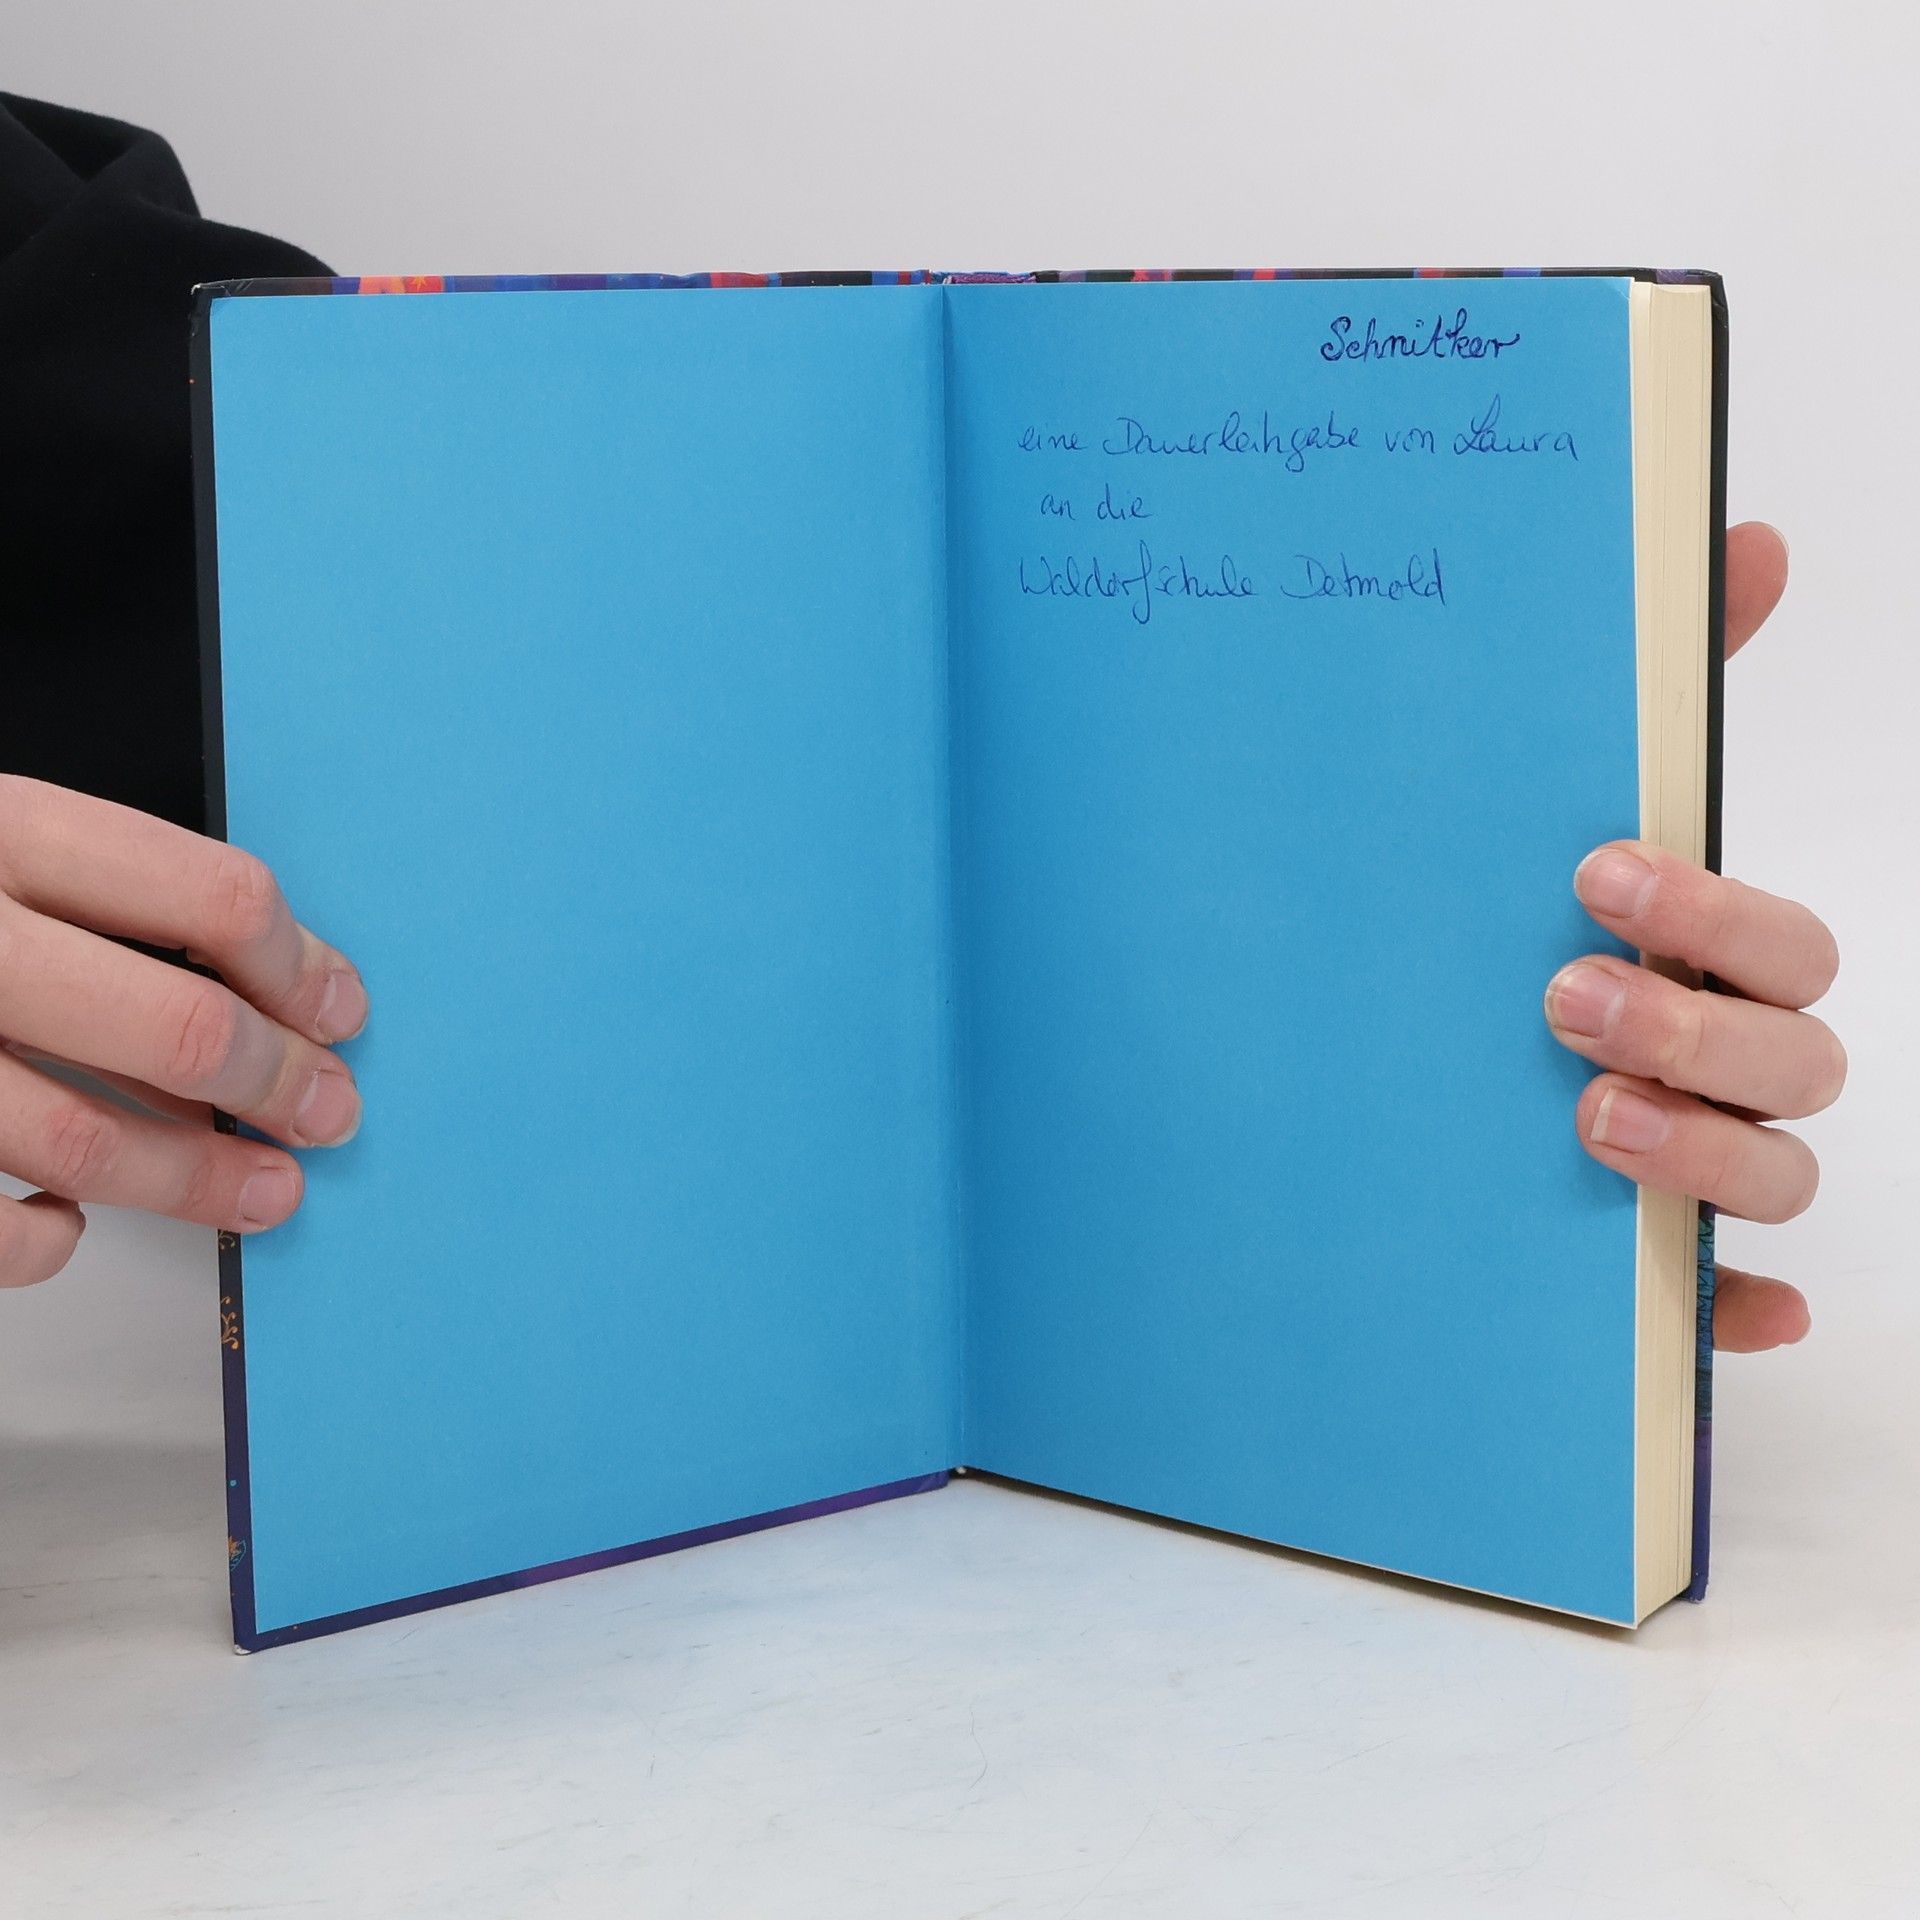 Schnitker
eine Dauerleihgabe von Laura
an die
Waldorfschule Detmold